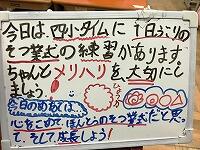 今日は、四小タイムに1日ぶりの
そつ業式の練習があります。
ちゃんとメリハリを大切にし
ましょう!
今日のめあては、
心をこめて、ほんとうのそつ業式だと思っ
て、そして、成長しよう!